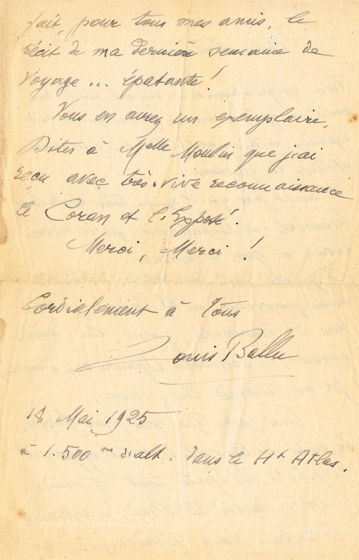 fait, pour tous mes amis, le
récit de ma dernière semaine de
voyage... épatante !
Vous en aurez un exemplaire.
Dites à Melle Moulin que j'ai
reçu avec très vive reconnaissance
le Coran et l'Exposé.
Merci, Merci !
Cordialement à tous
Louis Ballu
18 Mai 1925
à 1.500 m d'alt. dans le Ht Atlas.